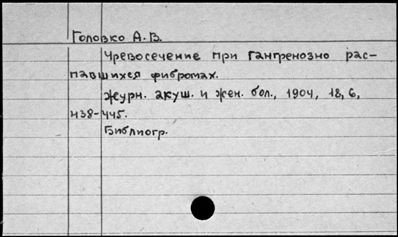 Головко А. В.
Чревосечение при гангренозно рас-
павшихся фибромах.
Журн. акуш. и жен. бол., 1904, 18, 6,
438-445.
Библиогр.